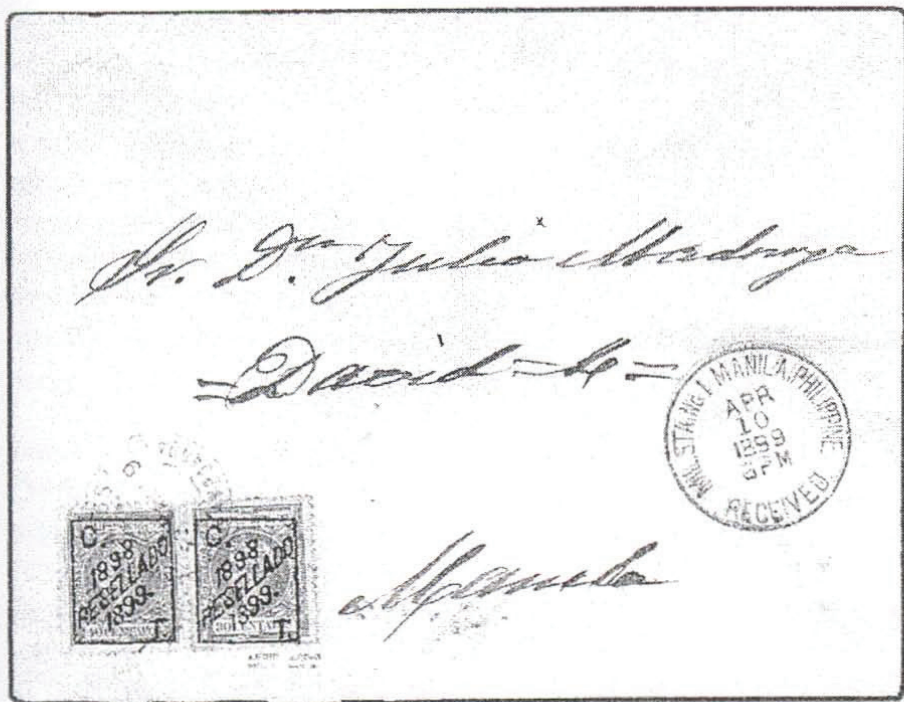 Sr. Dn. Julio Madruga
= David-4 =
MIL. STA. No. 1 MANILA, PHILIPPINE
APR
10
1899
6PM
RECEIVED
C.
1898
RESELLADO
1899.
T.
C.
1898
RESELLADO
1899.
T.
Manila